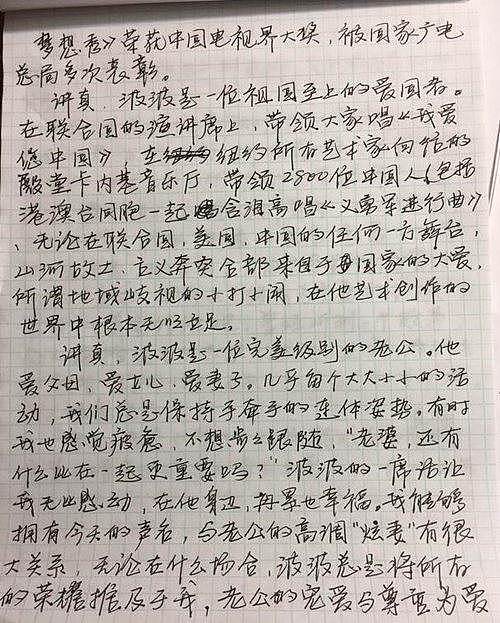 梦想秀》荣获中国电视界大奖，被国家广电
总局多次表彰。
讲真，波波是一位祖国至上的爱国者。
在联合国的演讲席上，带领大家唱《我爱
你中国》，在纽约所有艺术家向往的
殿堂卡内基音乐厅，带领2800位中国人（包括
港澳台同胞一起含泪高唱《义勇军进行曲》
，无论在联合国，美国，中国的任何一方舞台，
山河故土，主义奔突全部来自于国家的大爱，
所谓地域歧视的小打小闹，在他艺术创作的
世界中根本无以立足。
讲真，波波是一位完美级别的老公。他
爱父母，爱女儿，爱妻子。几乎每个大大小小的活
动，我们总是保持手牵手的连体姿势。有时
我也感觉疲惫，不想步步跟随，"老婆，还有
什么比在一起更重要吗？"波波的一席话让
我无比感动，在他身边，再累也幸福。我能够
拥有今天的声名，与老公的高调"炫妻"有很
大关系，无论在什么场合，波波总是将所有
的荣耀推及于我，老公的宠爱与尊重为爱